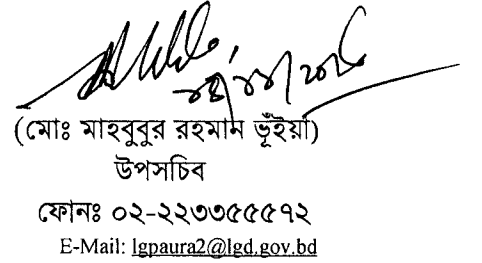 (মোঃ মাহবুবুর রহমান ভূঁইয়া)
উপসচিব
ফোনঃ ০২-২২৩৩৫৫৫৭২
E-Mail: lgpaura2@lgd.gov.bd